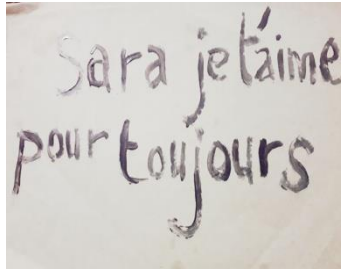 Sara je t'aime
pour toujours